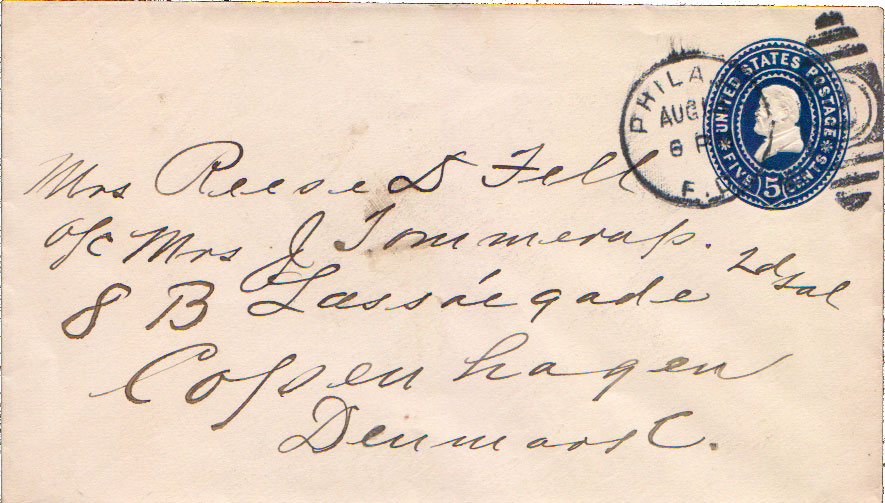 PHILA
AUG
6 P
F.
UNITED STATES POSTAGE
FIVE 5 CENTS
Mrs Reese D Fell
o/c Mrs J Tommerup.
8 B Læssöegade 2d Sal
Copenhagen
Denmark.